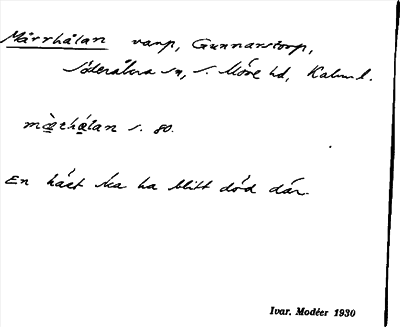 Märrhålan varp, Gunnarstorp,
Söderåkra sn, S. Möre hd, Kalm. l.
mæ̀rhålan s. 80.
En häst ska ha blitt död där.
Ivar. Modéer 1930